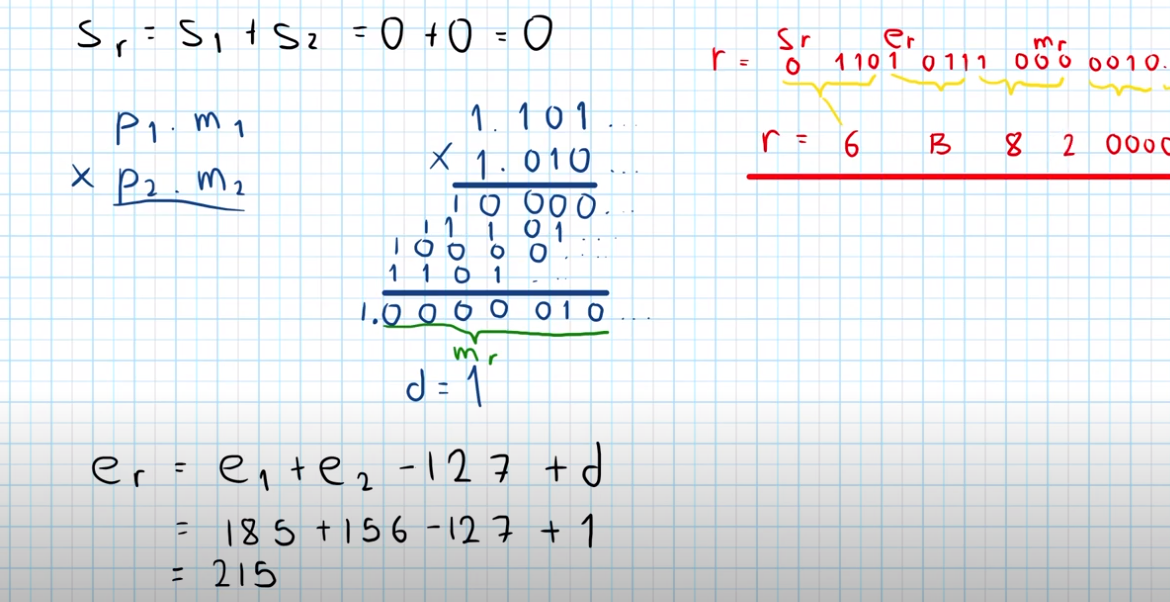 Sr = S1 + S2 = 0 + 0 = 0
P1 . m1
x P2 . m2
1.101...
x 1.010...
10000...
11101...
10000....
1101...
1.0000010...
mr
d = 1
er = e1 + e2 - 127 + d
= 185 + 156 - 127 + 1
= 215
Sr er mr
r = 0 1101 0111 1000 0010.
r = 6 B 8 2 0000